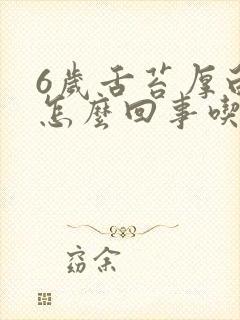 6歲舌苔厚白
怎麼回事喫
窈余